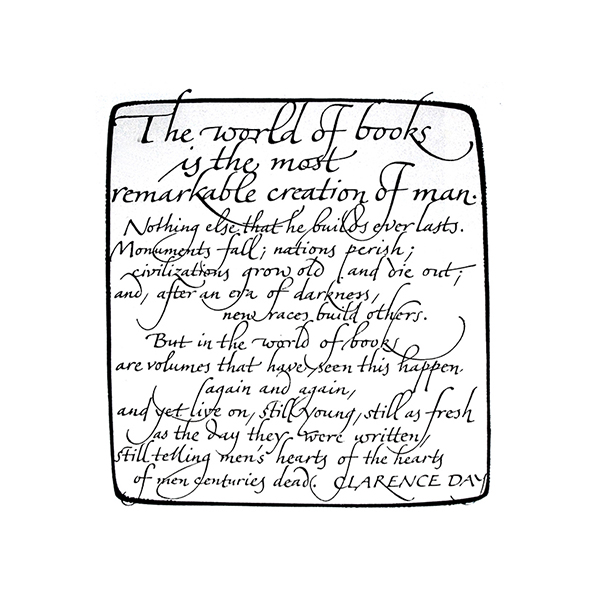 The world of books
is the most
remarkable creation of man.
Nothing else that he builds ever lasts.
Monuments fall; nations perish;
civilizations grow old and die out;
and, after an era of darkness,
new races build others.
But in the world of books
are volumes that have seen this happen
again and again,
and yet live on, still young, still as fresh
as the day they were written,
still telling men's hearts of the hearts
of men centuries dead. CLARENCE DAY